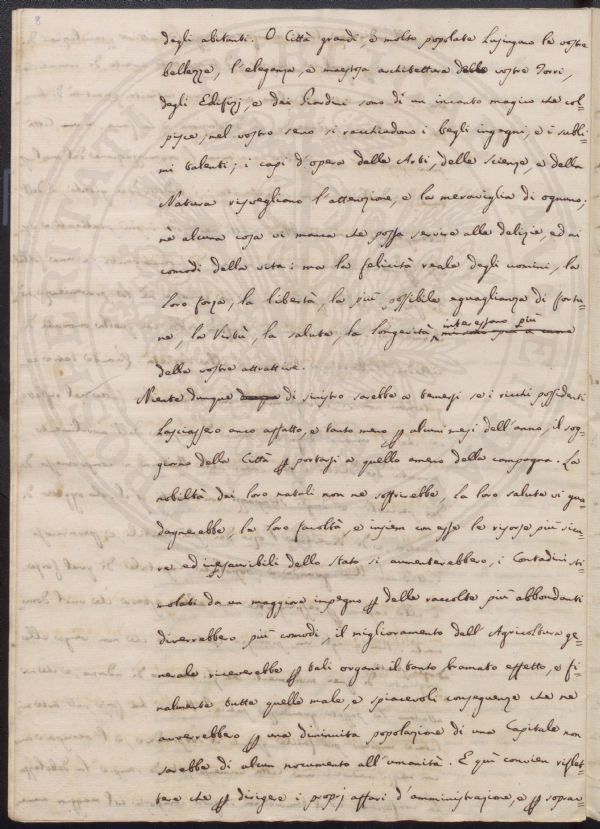 8
degli abitanti. O Città grandi, e molto popolate Lusingano le vostre
bellezze, l'eleganza, e maestosa architettura delle vostre Torri,
degli Edifizj, e dei Giardini sono di un incanto magico che col=
pisce, nel vostro seno si racchiudono i begli ingegni, e i subli=
mi talenti; i capi d'opera delle Arti, delle scienze, e della
Natura risvegliano l'attenzione, e la meraviglia di ognuno;
nè alcuna cosa vi manca che possa servire alle delizie, ed ai
comodi della vita: ma la felicità reale degli uomini, la
loro forza, la libertà, la più possibile eguaglianza di fortu=
ne, la Virtù, la salute, la longevità interessano più
delle vostre attrattive.
Niente dunque di sinistro sarebbe a temersi se i ricchi possidenti
lasciassero anco affatto, e tanto meno p alcuni mesi dell'anno, il sog=
giorno della Città p portarsi a quello ameno della campagna. La
nobiltà dei loro natali non ne soffrirebbe, la loro salute vi gua=
dagnerebbe, le loro facoltà, e insiem con esse le risorse più sicu=
re ed inesauribili dello stato si aumenterebbero, i Contadini sti=
molati da un maggiore impegno p delle raccolte più abbondanti
diverrebbero più comodi, il miglioramento dell'Agricoltura ge=
nerale riceverebbe p tali organi il tanto bramato effetto, e fi=
nalmente tutte quelle male, e spiacevoli conseguenze che ne
avverrebbero p una diminuita popolazione di una Capitale non
sarebbe di alcun nocumento all'umanità. E quì convien riflet=
tere che p dirigere i proprj affari d'amministrazione, e p soprav=